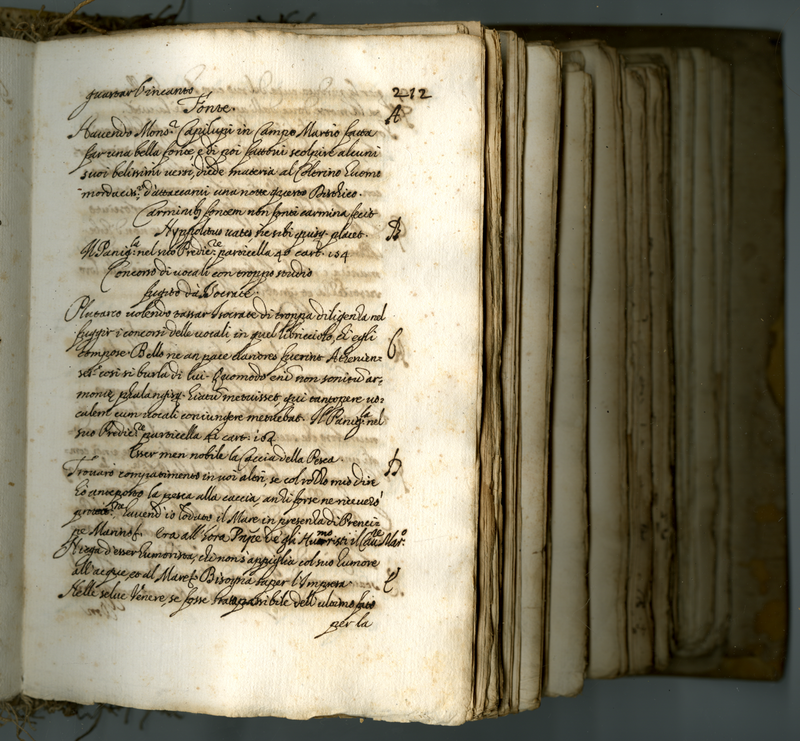 guastar l'incanto
212
Fonte.
A
Havendo Mons.r Capilupi in Campo Martio fatta
far una bella fonte, e di poi fattovi scolpire alcuni
suoi belissimi versi, diede materia al Colotino huomo
mordaciss.o d'attaccarvi una notte questo Distico.
Carminib, fontem non fonti carmina fecit
Hyppolitus vates ne sibi quisq. placet.
B
Il Panig.la nel suo Predic.re particella 40 cart. 154
Concorso di vocali con troppo studio
fugito da Isocrate.
Plutarco volendo tassar Isocrate di troppa diligenza nel
fuggir i concorsi delle vocali in quel libricciolo, ch'egli
C
compose. Bello ne an pace clariores fuerint Athenien=
ses: così si burla di lui. Quomodo enim non sonitum ar=
morum, phalangisq. metuisset, qui tantopere vo=
culem cum vocali coniungere metuebat. Il Panig.la nel
suo Predic.re particella 42 cart. 162
Esser men nobile la Caccia della Pesca.
D
Trovarò compatimento in voi altri, se col rozzo mio dire
hò anteposto la pesca alla caccia, anzi forse ne riceverò
havend'io lodato il Mare in presenza di Prenci=
pe Marino. Era all'hora Pnpe de gli Humoristi il Cau.re Mar.o
Niega d'esser humorista, chi non s'appiglia col suo humore
all'acque, et al Mare. Bisognia saper l'Impresa
E
Nelle selve Venere, se fosse stata possibile dell'ultimo fato
per la